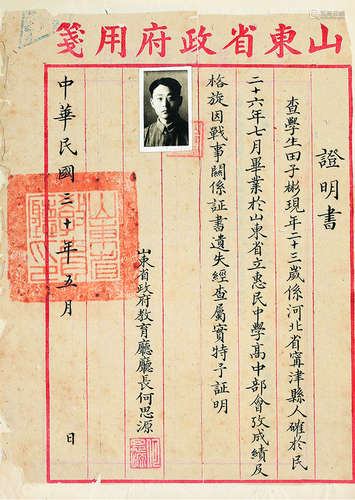 山東省政府用箋
證明書
查學生田子彬現年二十三歲係河北省寗津縣人確於民
二十六年七月畢業於山東省立惠民中學高中部會攷成績及
格旋因戰事關係証書遺失經查屬實特予証明
山東省政府教育廳廳長何思源
中華民國三十年五月 日